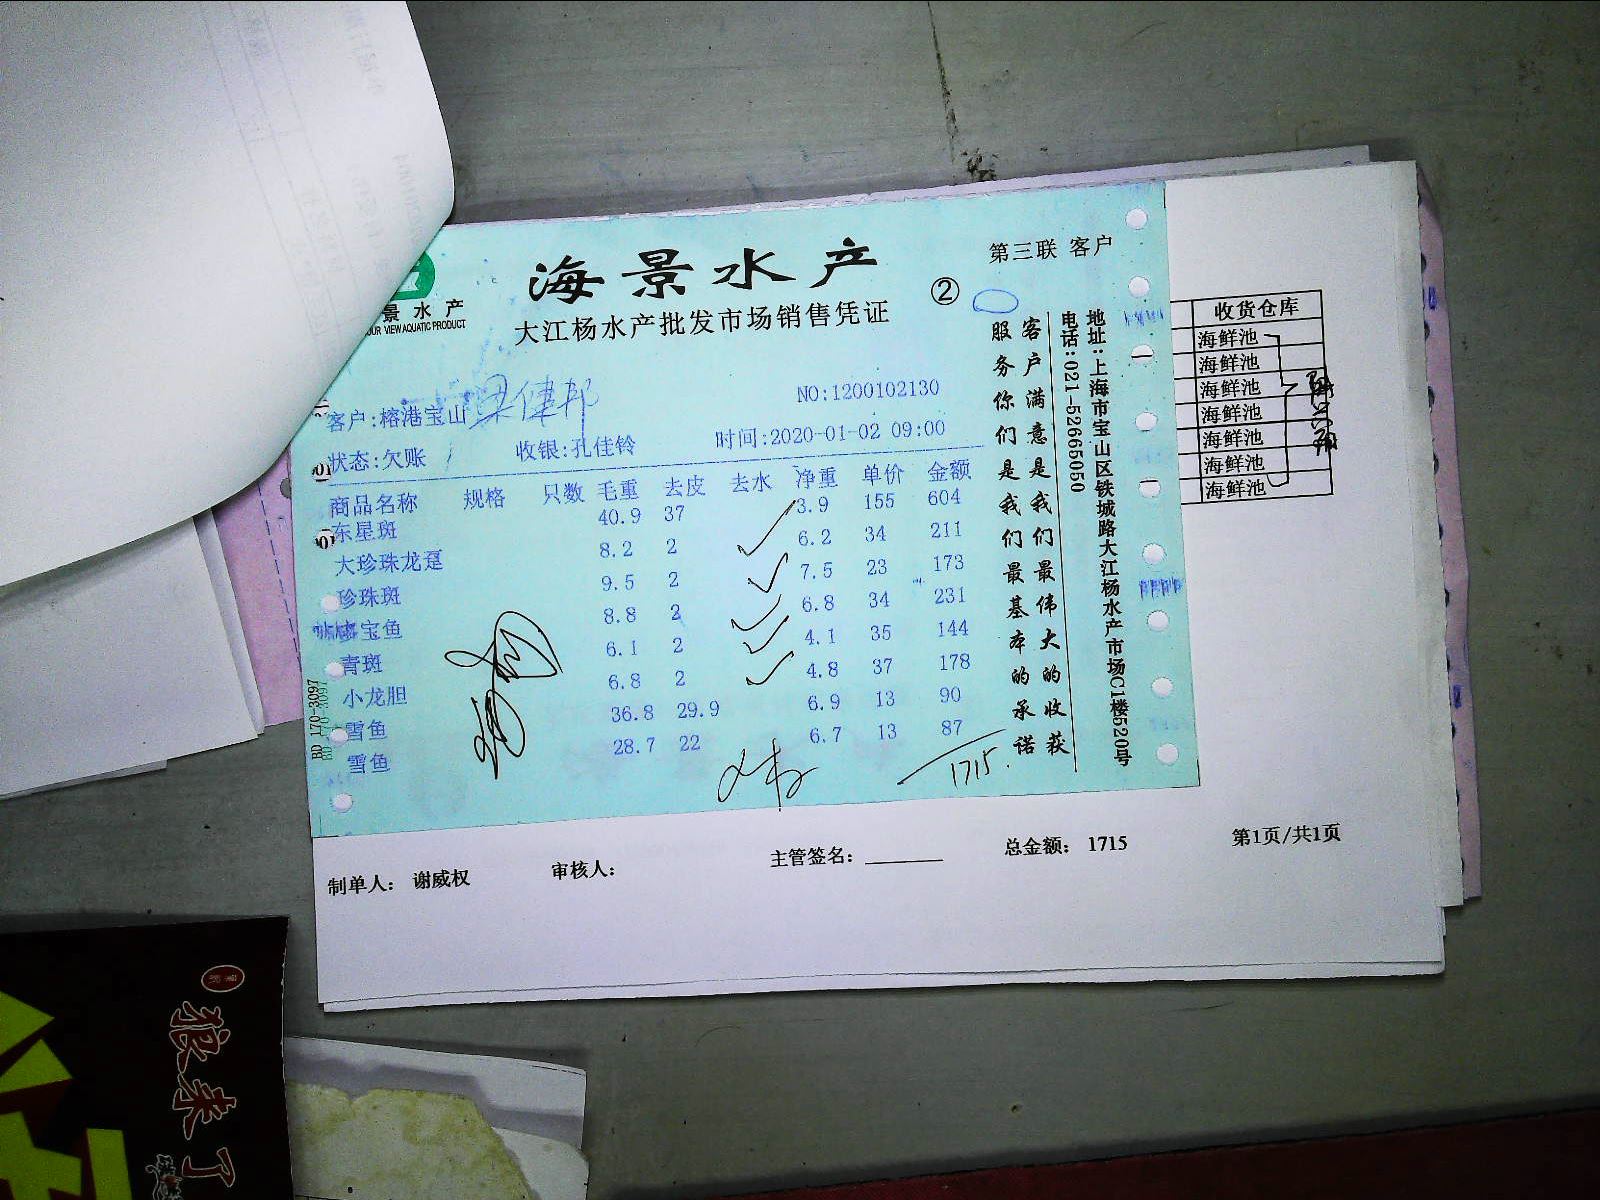 海景水产
第三联 客户
景水产
OUR VIEW AQUATIC PRODUCT
大江杨水产批发市场销售凭证
②
客户:榕港宝山 梁健邦
NO:1200102130
状态:欠账
收银:孔佳铃
时间:2020-01-02 09:00
商品名称 规格 只数 毛重 去皮 去水 净重 单价 金额
东星斑 40.9 37 3.9 155 604
大珍珠龙趸 8.2 2 6.2 34 211
珍珠斑 9.5 2 7.5 23 173
宝鱼 8.8 2 6.8 34 231
青斑 6.1 2 4.1 35 144
小龙胆 6.8 2 4.8 37 178
雪鱼 36.8 29.9 6.9 13 90
雪鱼 28.7 22 6.7 13 87
1715.
客户满意是我们最伟大的收获
服务你们是我们最基本的承诺
地址:上海市宝山区铁城路大江杨水产市场C1楼520号
电话:021-52665050
BD 170-3097
收货仓库
海鲜池
海鲜池
海鲜池
海鲜池
海鲜池
海鲜池
海鲜池
制单人: 谢威权
审核人:
主管签名:
总金额: 1715
第1页/共1页
狼来了